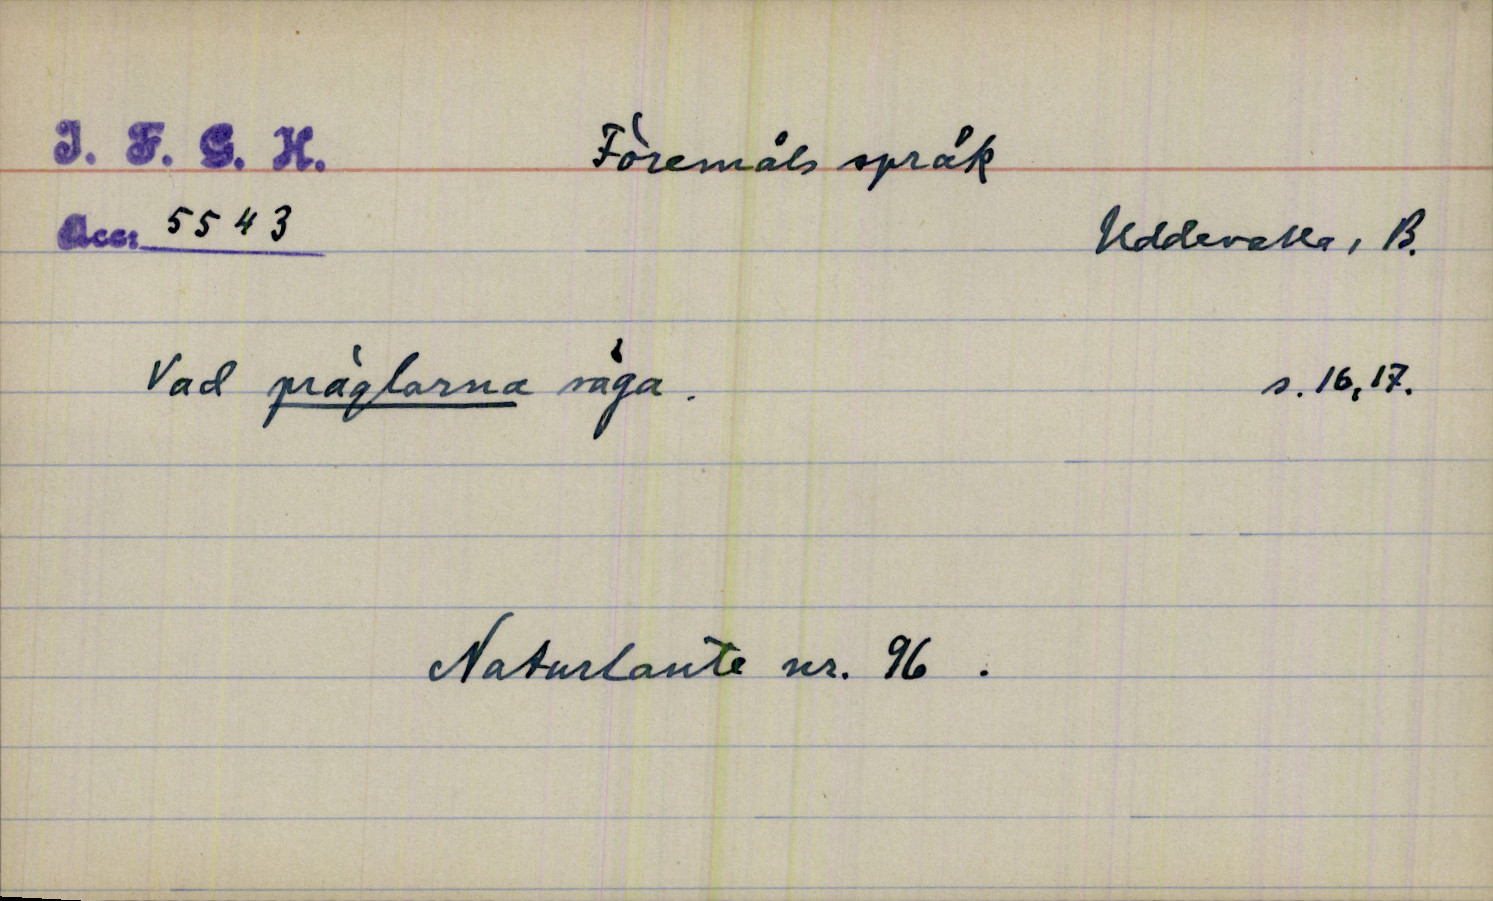 I. F. G. H.
Föremåls språk
Acc: 5543
Uddevalla, B.
Vad präglarna säga.
s. 16, 17.
Naturlaute nr. 96.